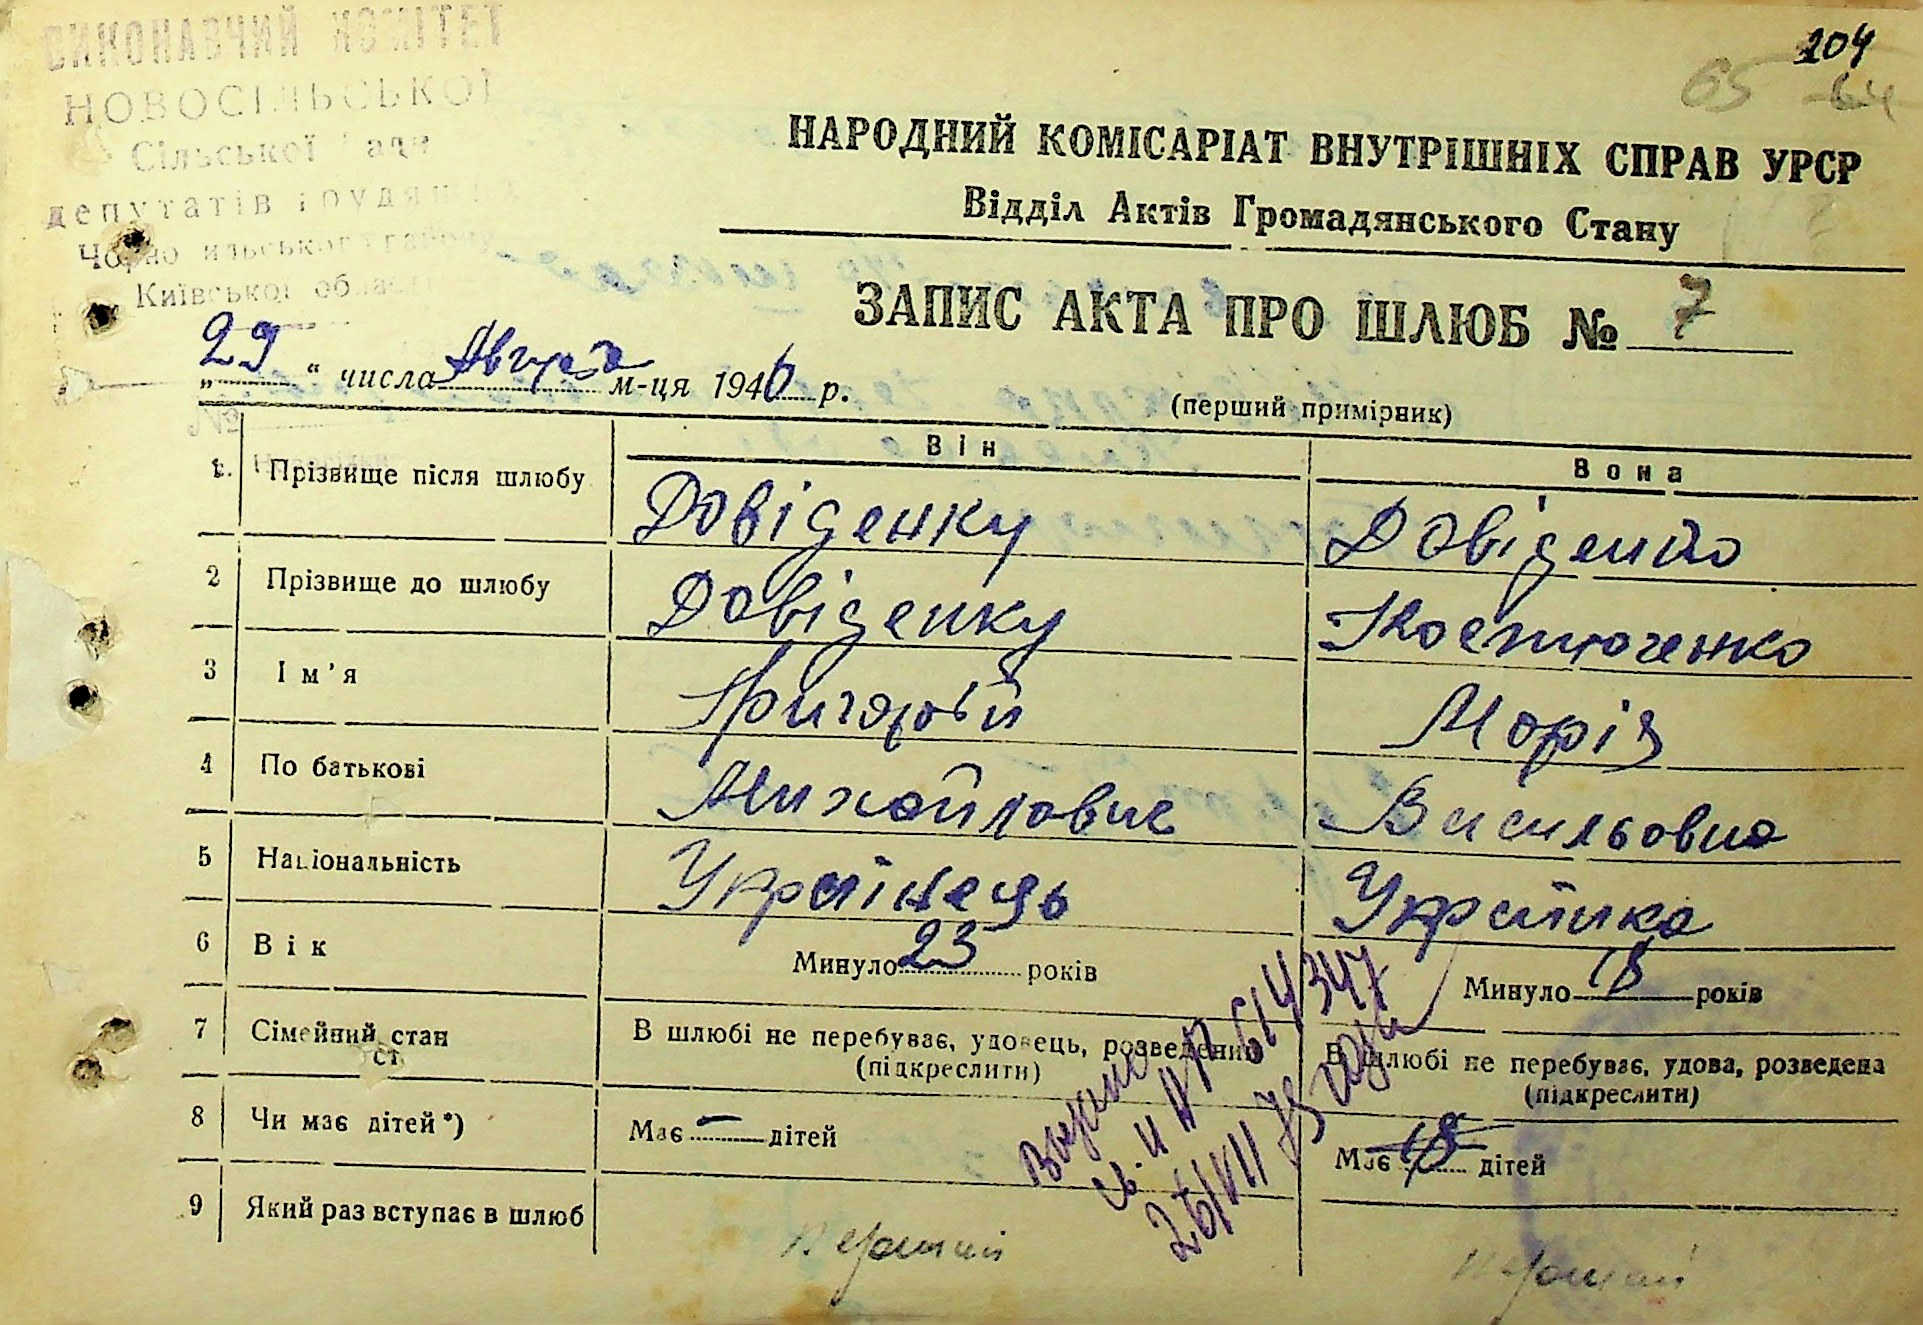 ВИКОНАВЧИЙ КОМІТЕТ
НОВОСІЛЬСЬКОЇ
Сільської Ради
депутатів трудящих
Київської області
№
204
65 64
НАРОДНИЙ КОМІСАРІАТ ВНУТРІШНІХ СПРАВ УРСР
Відділ Актів Громадянського Стану
ЗАПИС АКТА ПРО ШЛЮБ № 7
„29“ числа Августа м-ця 1946 р.
(перший примірник)
Він Вона
1. Прізвище після шлюбу Довіденку Довіденко
2 Прізвище до шлюбу Довіденку Костюченко
3 Ім'я Григорій Марія
4 По батькові Михайлович Васильовна
5 Національність Українець Українка
6 Вік Минуло 23 років Минуло 18 років
7 Сімейний стан В шлюбі не перебуває, удовець, розведений (підкреслити) В шлюбі не перебуває, удова, розведена (підкреслити)
ст
8 Чи має дітей*) Має – дітей Має 18 дітей
9 Який раз вступає в шлюб Перший Перший
26/VII 75 года